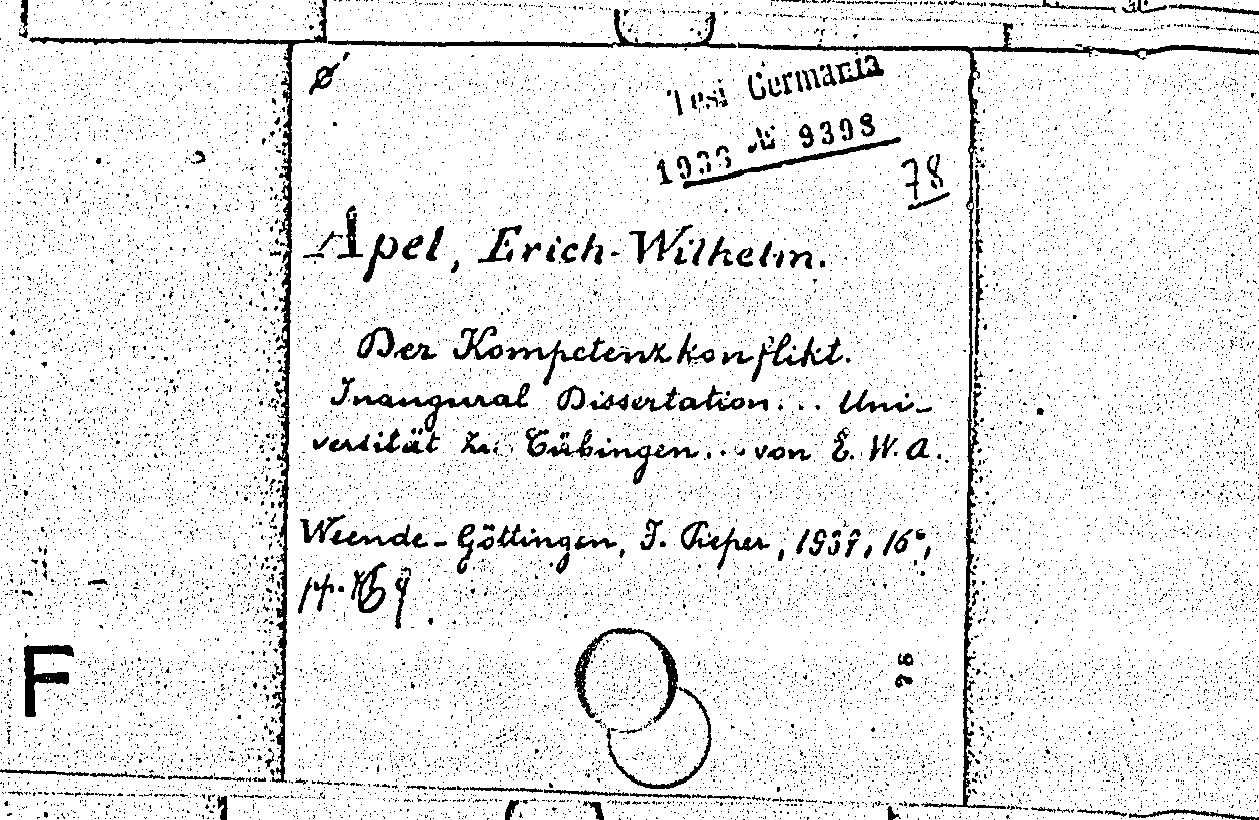 Tesi Germania
1933 № 9398
78
Apel, Erich-Wilhelm.
Der Kompetenzkonflikt.
Inaugural Dissertation... Uni-
versität zu Tübingen... von E. W. A.
Weende-Göttingen, J. Pieper, 1937, 16°,
pp.
F
76